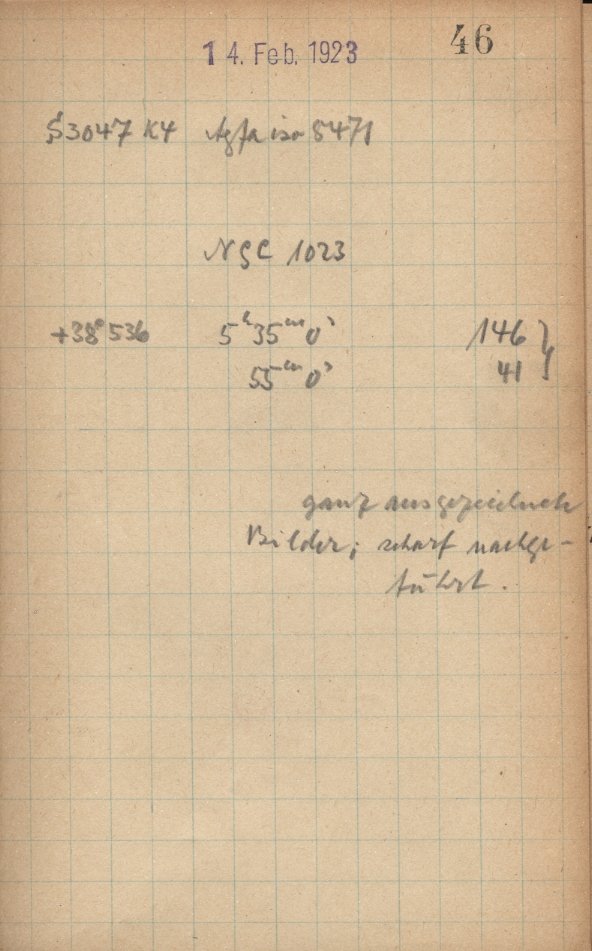 14. Feb. 1923 46
S3047 K4 Agfa iso 5471
NGC 1023
+38° 536 5ʰ 35ᵐ 0ˢ 146 }
55ᵐ 0ˢ 41
ganz ausgezeichnete
Bilder; scharf nachge-
führt.